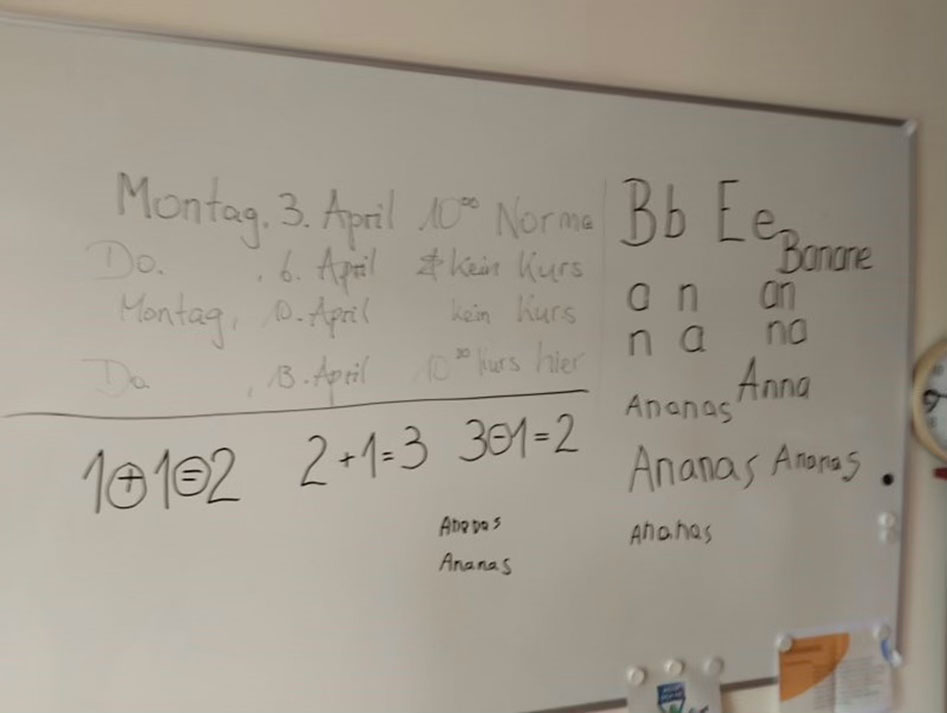 Montag, 3. April 10⁰⁰ Norma
Do. , 6. April kein Kurs
Montag, 10. April kein Kurs
Do. , 13. April 10⁰⁰ Kurs hier
1+1=2 2+1=3 3-1=2
Ananas
Ananas
Bb Ee
Banane
a n an
n a na
Anna
Ananas
Ananas Ananas
Ananas